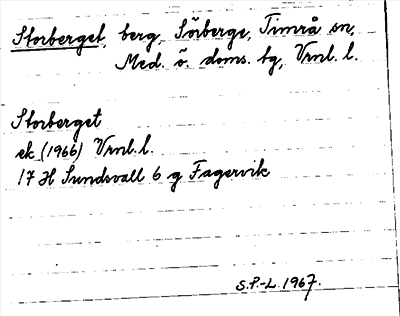 Storberget, berg, Sörberge, Timrå sn,
Med. ö. doms. tg, Vrnl. l.
Storberget
ek (1966) Vrnl. l.
17 H Sundsvall 6 g Fagervik
S.P.-L. 1967.